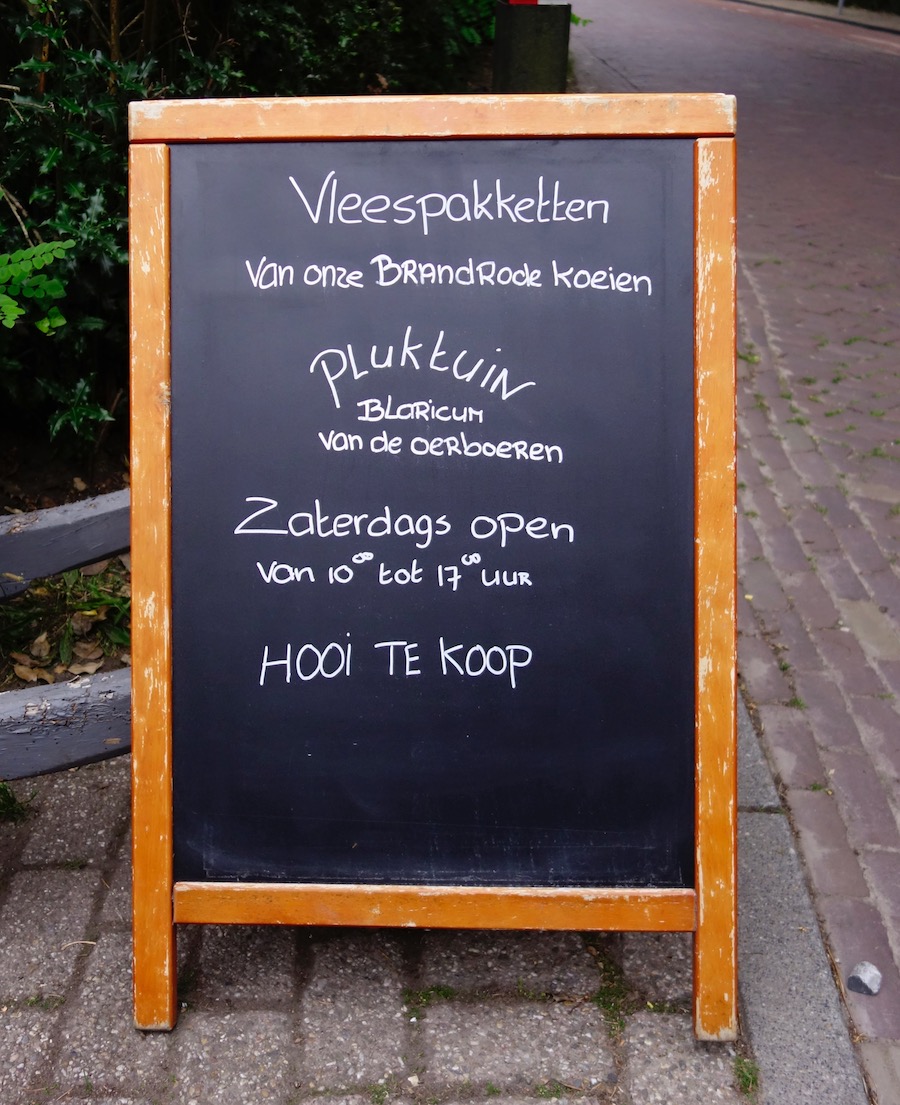 Vleespakketten
Van onze BRANdRode koeien
PLUKTUIN
BLARICUM
Van de OERboeren
Zaterdags open
Van 10⁰⁰ tot 17⁰⁰ uur
HOOi TE KOOP